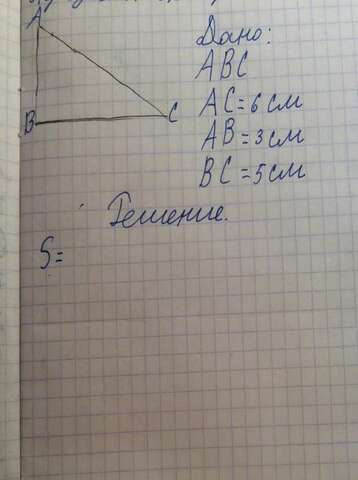 Дано:
A
ABC
AC=6 см
B
C
AB=3 см
BC=5 см
Решение.
S=